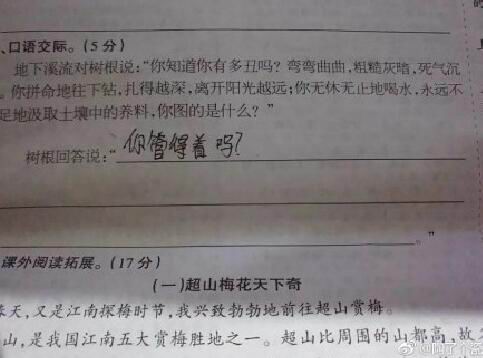 、口语交际。(5分)
地下溪流对树根说:“你知道你有多丑吗?弯弯曲曲,粗糙灰暗,死气沉
。你拼命地往下钻,扎得越深,离开阳光越远;你无休无止地喝水,永远不
足地汲取土壤中的养料,你图的是什么?”
树根回答说:“你管得着吗?
。”
课外阅读拓展。(17分)
(一)超山梅花天下奇
天,又是江南探梅时节,我兴致勃勃地前往超山赏梅。
山,是我国江南五大赏梅胜地之一。超山比周围的山都高,故